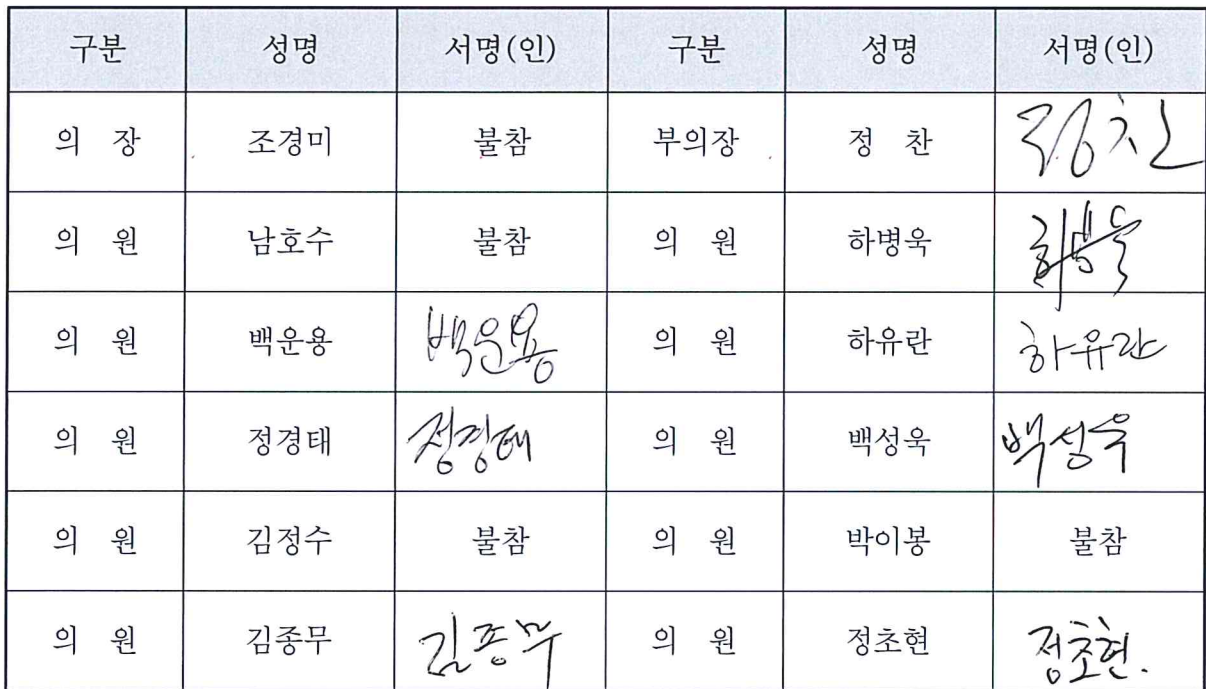 구분 성명 서명(인) 구분 성명 서명(인)
의 장 조경미 불참 부의장 정 찬 정찬
의 원 남호수 불참 의 원 하병욱 하병욱
의 원 백운용 백운용 의 원 하유란 하유란
의 원 정경태 정경태 의 원 백성욱 백성욱
의 원 김정수 불참 의 원 박이봉 불참
의 원 김종무 김종무 의 원 정초현 정초현.